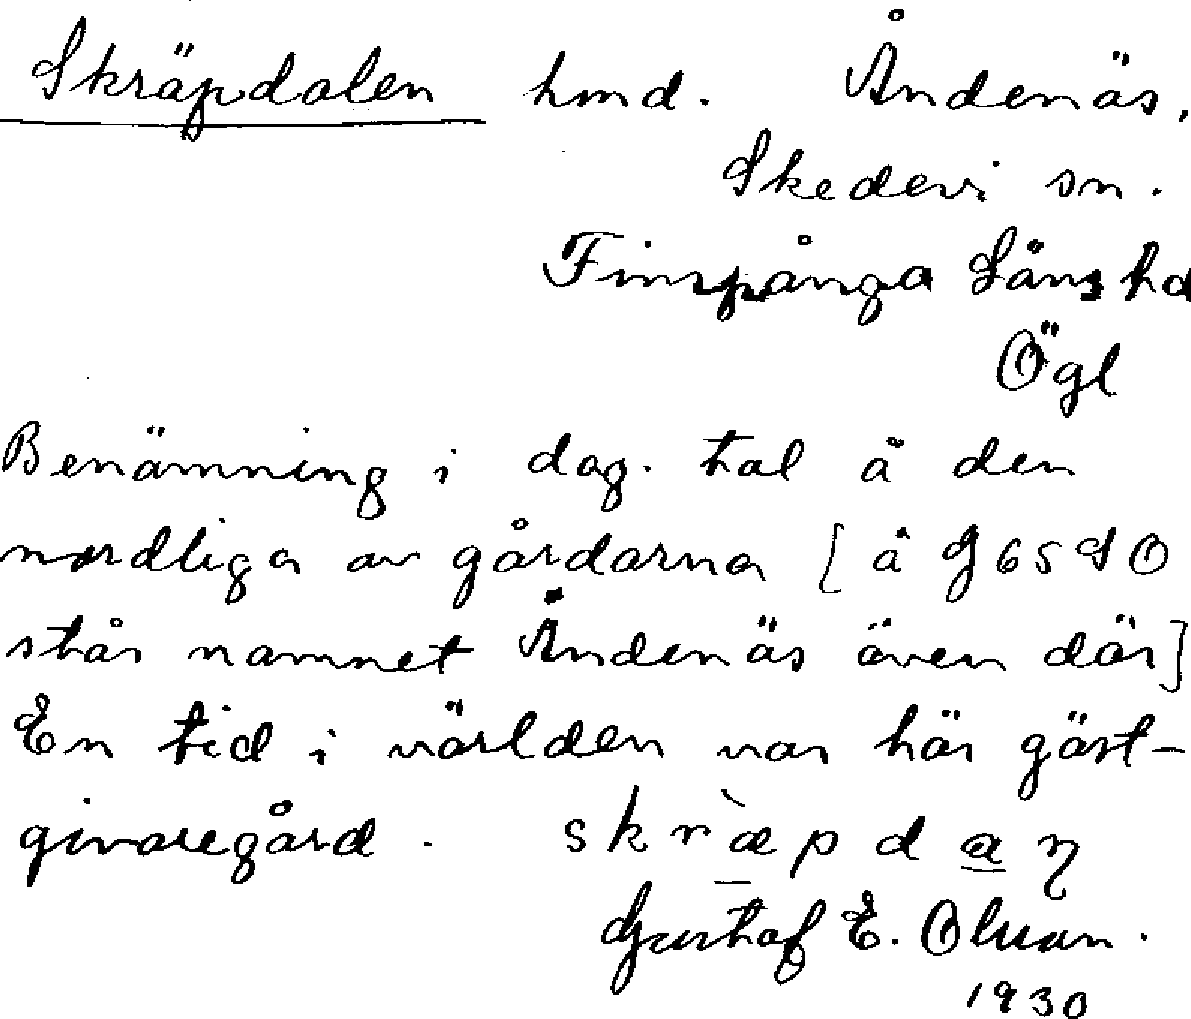 Skräpdalen hmd. Åndenäs,
Skedevi sn.
Finspånga Läns hd
Ögl
Benämning i dag. tal å den
nordliga av gårdarna [å G 65 SO
står namnet Åndenäs även där]
En tid i världen var här gäst-
givaregård. skræ̀pdan̥
Gustaf E. Olsson.
1930